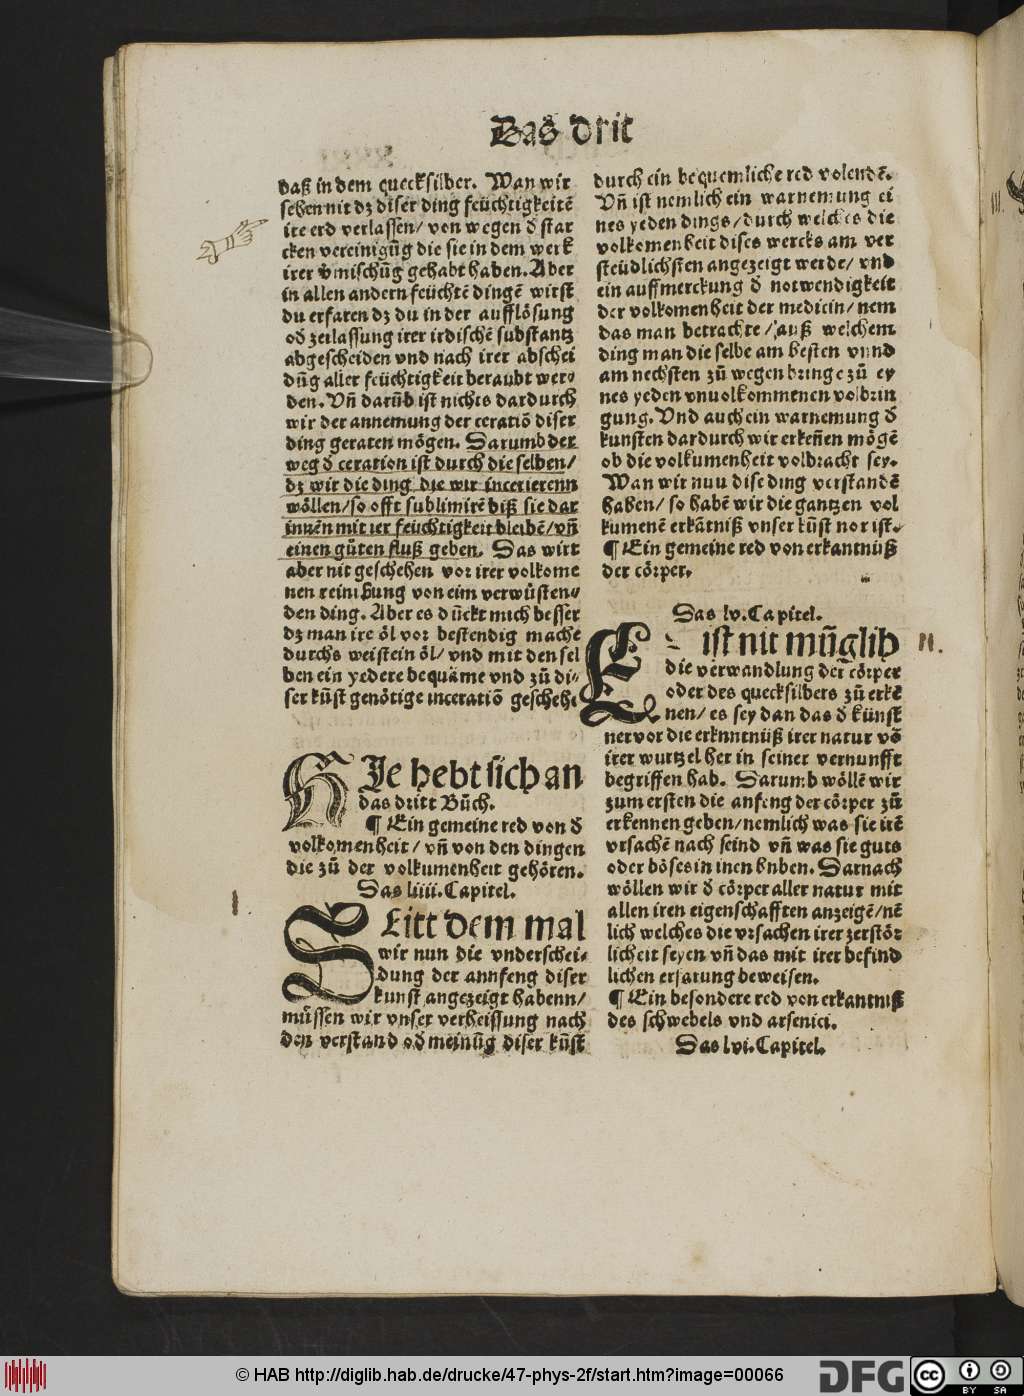 Das drit
daß in dem quecksilber. Wan wir
sehen nit dz diser ding feüchtigkeitẽ
ire erd verlassen/ von wegen đ star
cken vereinigũg die sie in dem werk
irer v̈mischũg gehabt haben. Aber
in allen andern feüchtẽ dingẽ wirst
du erfaren dz du in der aufflösung
ođ zerlassung irer irdischẽ substantz
abgescheiden vnd nach irer abschei
dũg aller feüchtigkeit beraubt wer⸗
den. Vñ darũb ist nichts dardurch
wir der annemung der ceratiõ diser
ding geraten mögen. Darumb der
weg đ ceration ist durch die selben/
dz wir die ding die wir incerierenn
wöllen/ so offt sublimirẽ biß sie dar
innẽn mit irer feüchtigkeit bleibẽ/ vñ
einen gůten fluß geben. Das wirt
aber nit geschehen vor irer volkome
nen reinigung von eim verwüsten⸗
den ding. Aber es dũckt mich besser
dz man ire öl vor bestendig mache
durchs weistein öl/ vnd mit den sel
ben ein yedere bequäme vnd zů di⸗
ser kũst genötige inceratiõ gescheh.
HIe hebt sich an
das dritt Bůch.
¶ Ein gemeine red von đ
volkomenheit/ vñ von den dingen
die zů der volkumenheit gehören.
Das liiii. Capitel.
I
SEitt dem mal
wir nun die vnderschei⸗
dung der annfeng diser
kunst angezeigt habenn/
müssen wir vnser verheissung nach
dem verstand ođ meinũg diser kũst
durch ein bequemliche red volendẽ.
Vñ ist nemlich ein warnemung ei
nes yeden dings/ durch welches die
volkomenheit dises wercks am ver
steüdlichsten angezeigt werde/ vnd
ein auffmerckung đ notwendigkeit
der volkomenheit der medicin/ nem
das man betrachte/ auß welchem
ding man die selbe am besten vnnd
am nechsten zů wegen bringe zů ey
nes yeden vnuolkommenen volbrin
gung. Vnd auch ein warnemung đ
kunsten dardurch wir erkeñen mögẽ
ob die volkumenheit volbracht sey.
Wan wir nuu dise ding verstandẽ
haben/ so habẽ wir die gantzen vol
kumenẽ erkãtniß vnser kũst nor ist.
¶ Ein gemeine red von erkantnüß
der cörper.
Das lv. Capitel.
II.
ES ist nit mũglih
die verwandlung der cörper
oder des quecksilbers zů erkẽ
nen/ es sey dan das đ künst
ner vor die erknntnüß irer natur võ
irer wurtzel her in seiner vernunfft
begriffen hab. Darumb wöllẽ wir
zum ersten die anfeng der cörper zů
erkennen geben/ nemlich was sie irẽ
vrsachẽ nach seind vñ was sie guts
oder böses in inen hnben. Darnach
wöllen wir đ cörper aller natur mit
allen iren eigenschafften anzeigẽ/ nẽ
lich welches die vrsachen irer zerstör
licheit seyen vñ das mit irer befind
lichen erfarung beweisen.
¶ Ein besondere red von erkantniß
des schwebels vnd arsenici.
Das lvi. Capitel.
III.
© HAB http://diglib.hab.de/drucke/47-phys-2f/start.htm?image=00066
DFG
cc BY SA